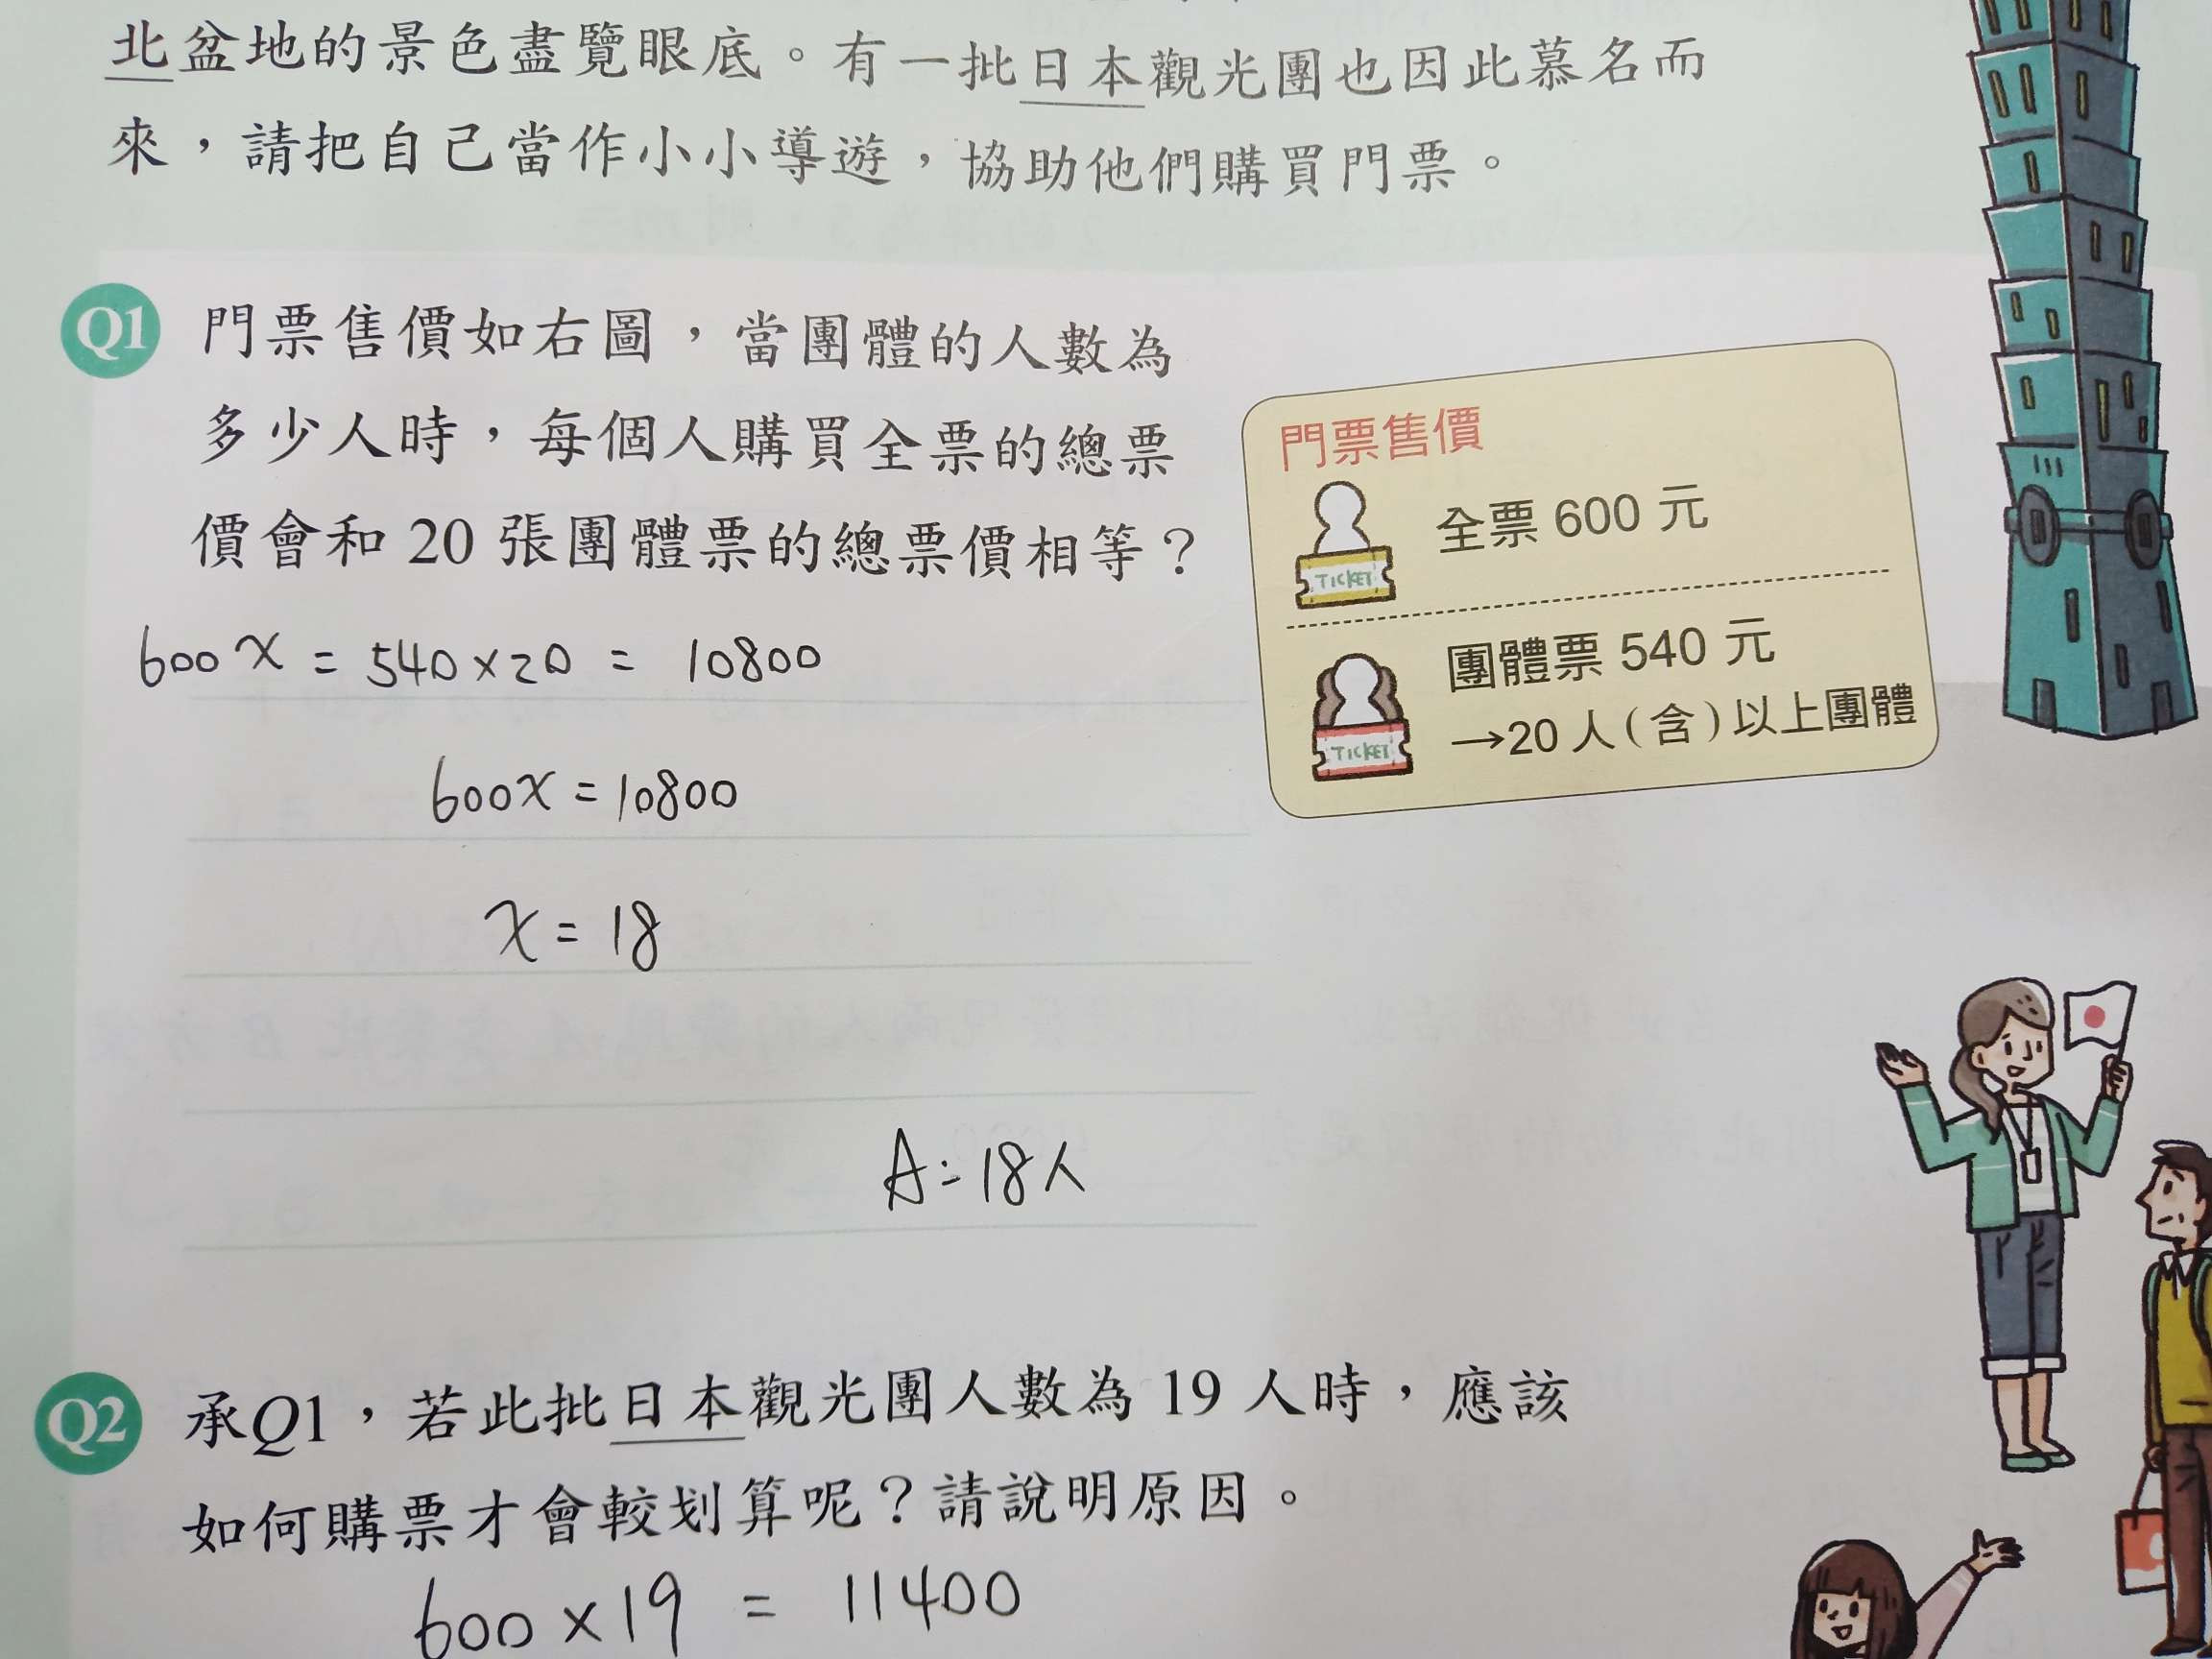 北盆地的景色盡覽眼底。有一批日本觀光團也因此慕名而
來，請把自己當作小小導遊，協助他們購買門票。
Q1 門票售價如右圖，當團體的人數為
多少人時，每個人購買全票的總票
價會和 20 張團體票的總票價相等？
門票售價
TICKET
全票 600 元
TICKET
團體票 540 元
→20 人（含）以上團體
600x = 540×20 = 10800
600x = 10800
x = 18
A:18人
Q2 承Q1，若此批日本觀光團人數為 19 人時，應該
如何購票才會較划算呢？請說明原因。
600×19 = 11400